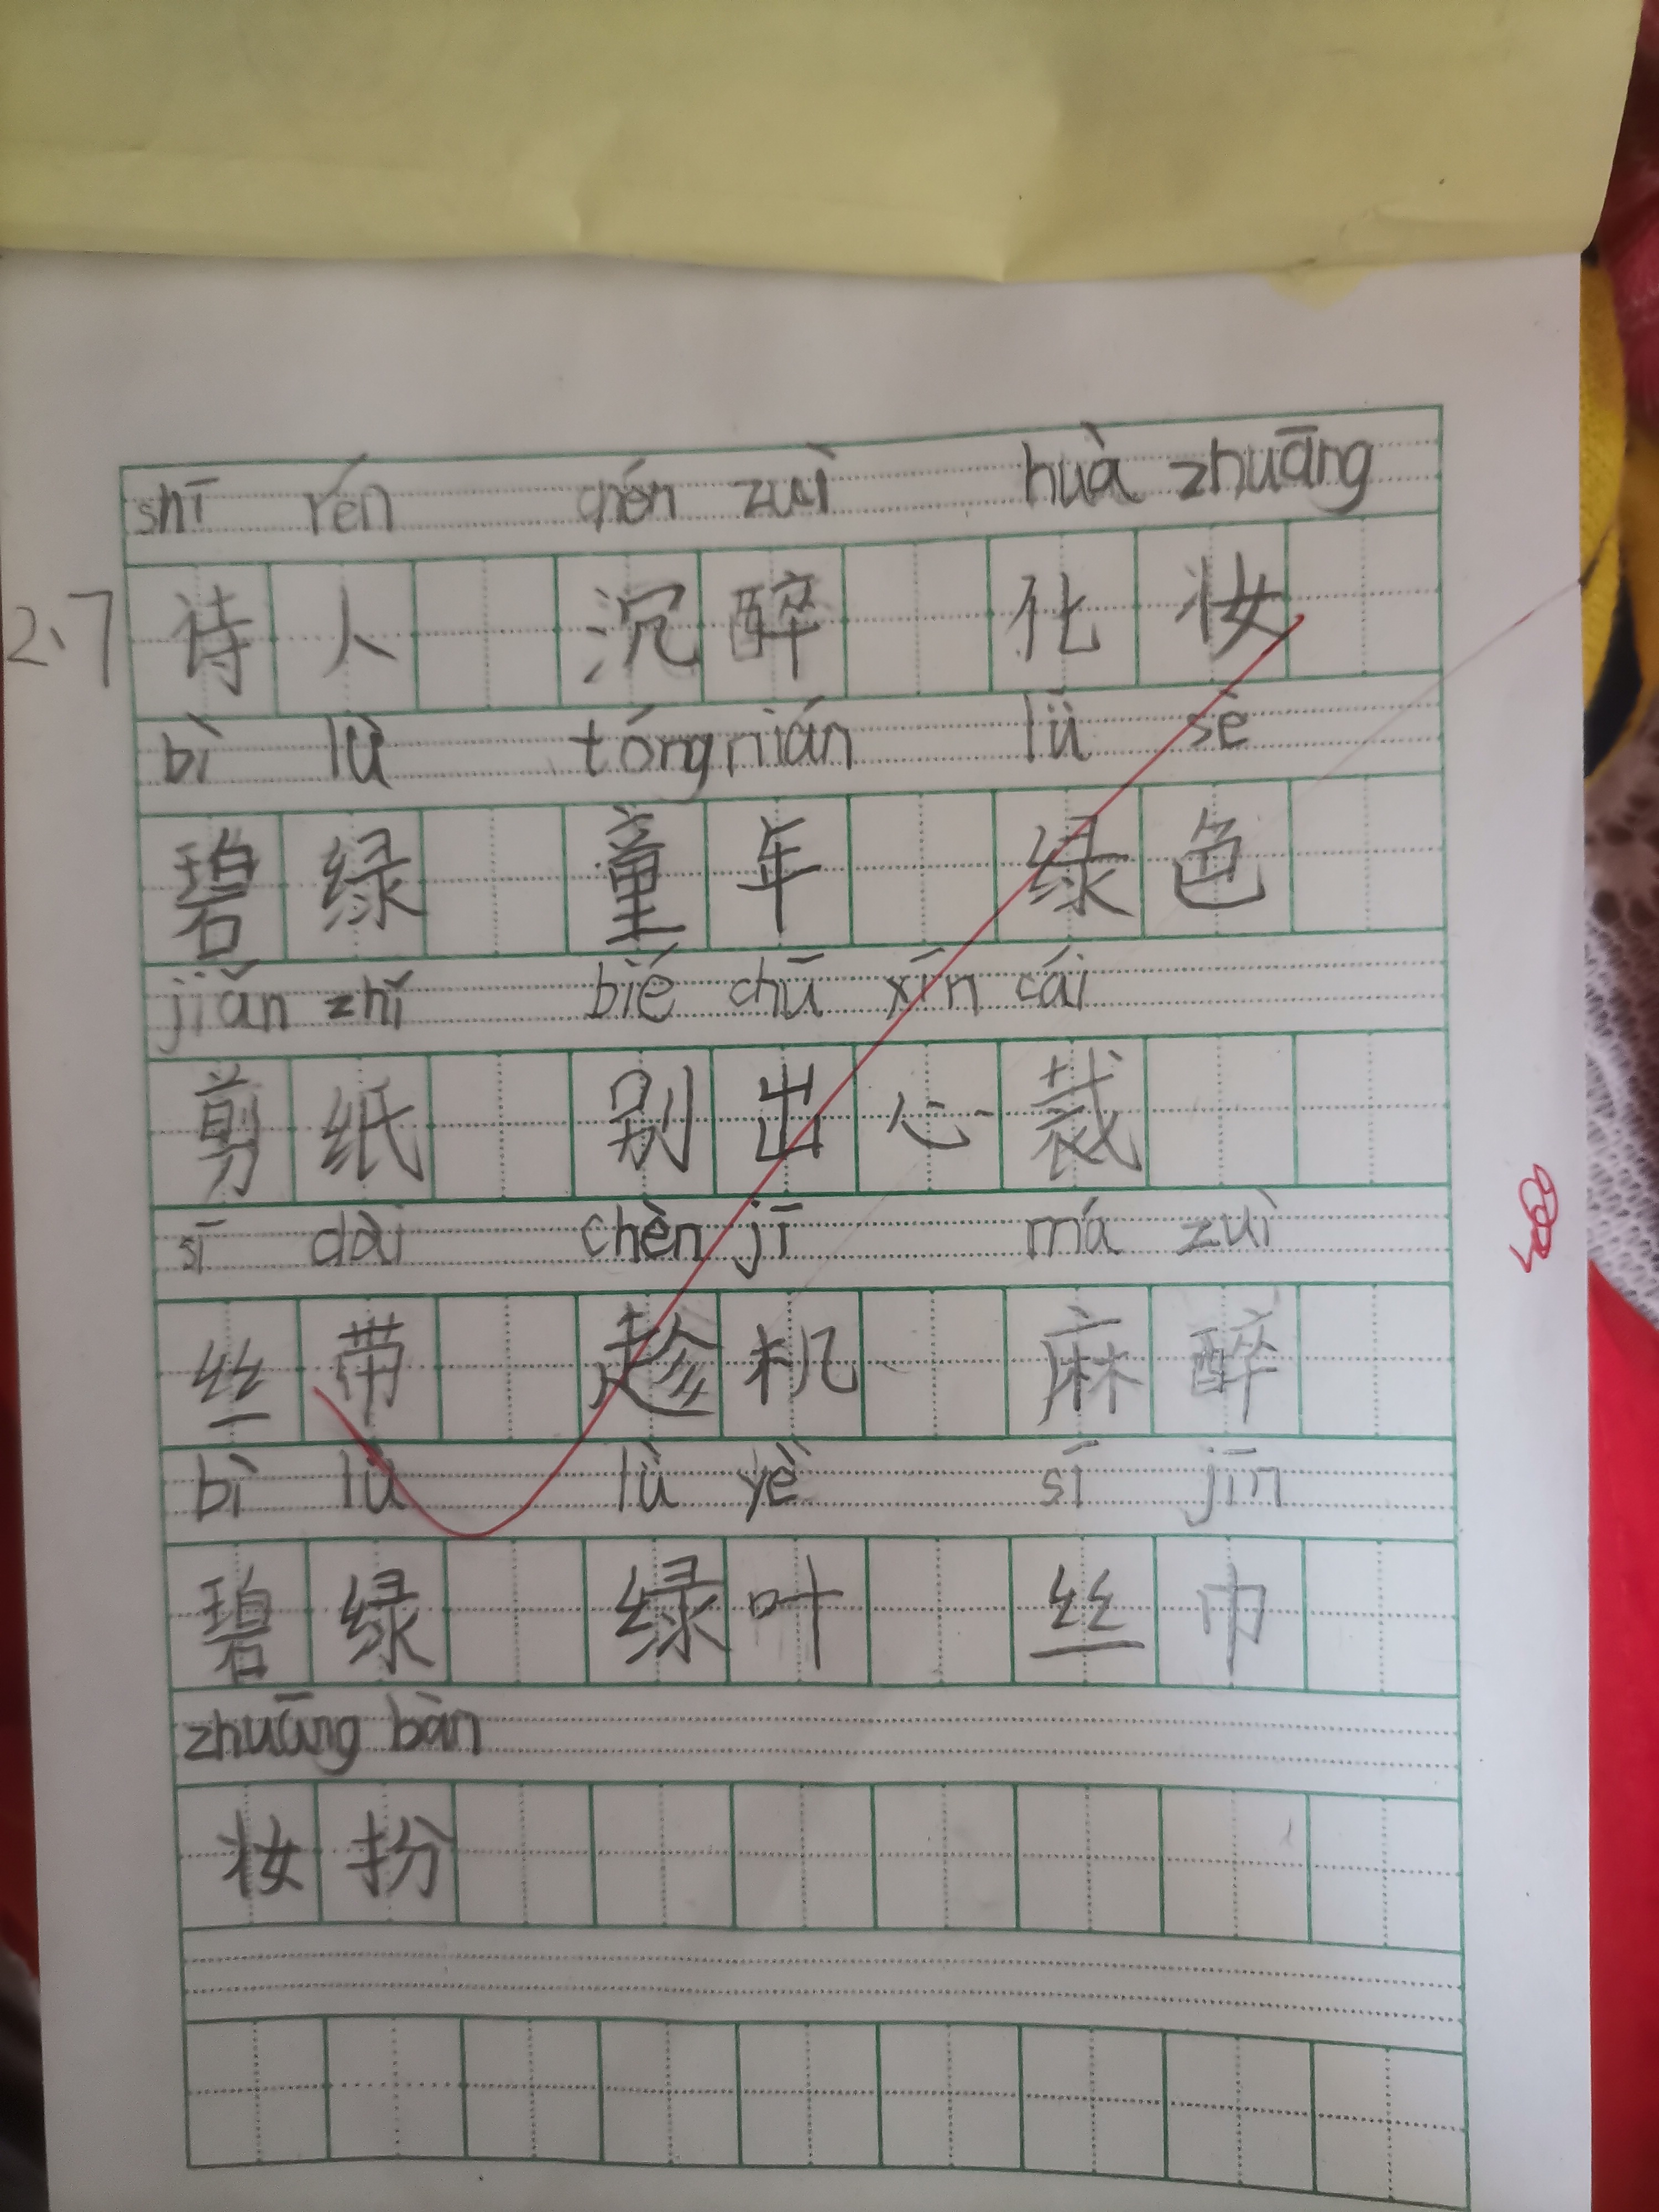 shī rén chén zuì huà zhuāng
2、7 诗人 沉醉 化妆
bì lǜ tóng nián lǜ sè
碧绿 童年 绿色
jiǎn zhǐ bié chū xīn cái
剪纸 别出心裁
sī dài chèn jī má zuì
丝带 趁机 麻醉
bì lǜ lǜ yè sī jīn
碧绿 绿叶 丝巾
zhuāng bàn
妆扮